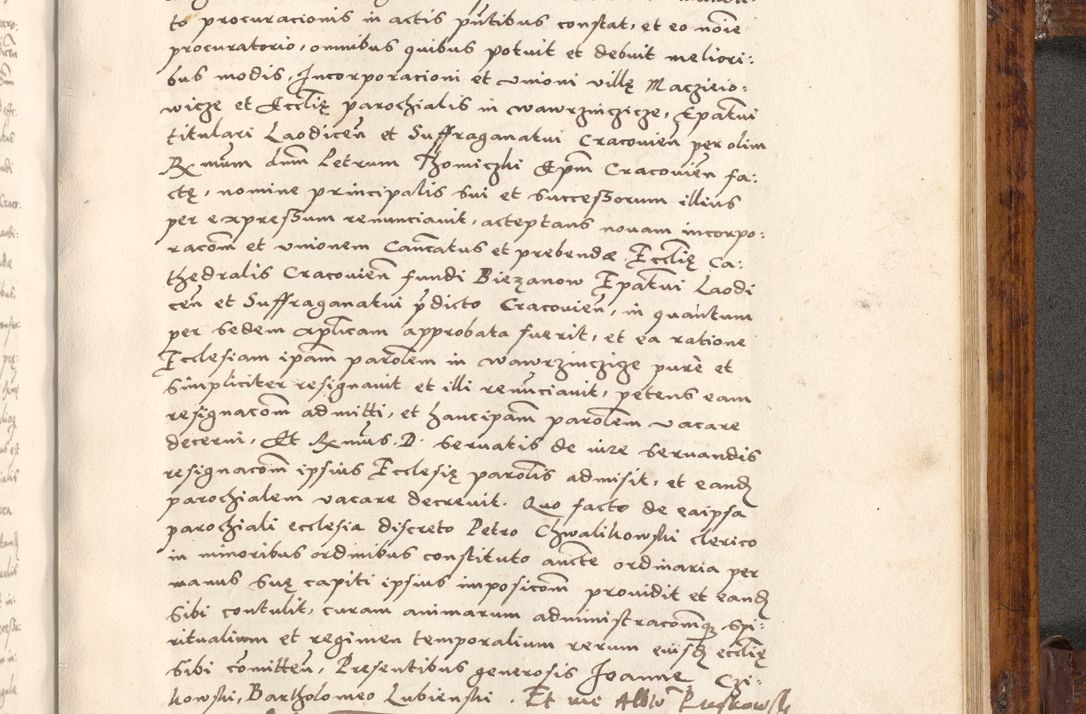 to procuracionis in actis pntibus constat, et eo noie
procuratorio, omnibus quibus potuit et debuit meliori:
bus modis, Incorporacioni et unioni villę Maczieio:
wicze et Ecclię parochialis in wawrzinczicze, Epatui
titulari Laodiceñ et Suffraganatui Cracovieñ per olim
Rmum dnm Petrum Thomiczki Epm Cracovieñ fa:
ctę, nomine principalis sui et successorum illius
per expressum renunciavit, acceptans novam incorpo:
racom et unionem Cancatus et prebendæ Ecclię Ca:
thedralis Cracovieñ fundi Biezanow Epatui Laodi
ceñ et Suffraganatui pdicto Cracovieñ, in quantum
per sedem aplicam approbata fuerit, et ea ratione
Ecclesiam ipam parolem in wawrzinczicze purè et
simpliciter resignavit et illi renunciavit, petens eam
resignacom admitti, et hanc ipam parolem vacare
decerni, Et Rmus D. servatis de iure servandis
resignacom ipsius Ecclesię parolis admisit, et eand
parochialem vacare decrevit. Quo facto de eaipsa
parochiali ecclesia discreto Petro Chwalikowski clerico
in minoribus ordinibus constituto aucte ordinaria per
manus suę capiti ipsius imposicom providit et eand
sibi contulit, curam animarum administracomq spi:
ritualium et regimen temporalium rerum eiusd ecclię
sibi comitten, Presentibus generosis Joanne Czi:
kowski, Bartholomeo Lubienski. Et me